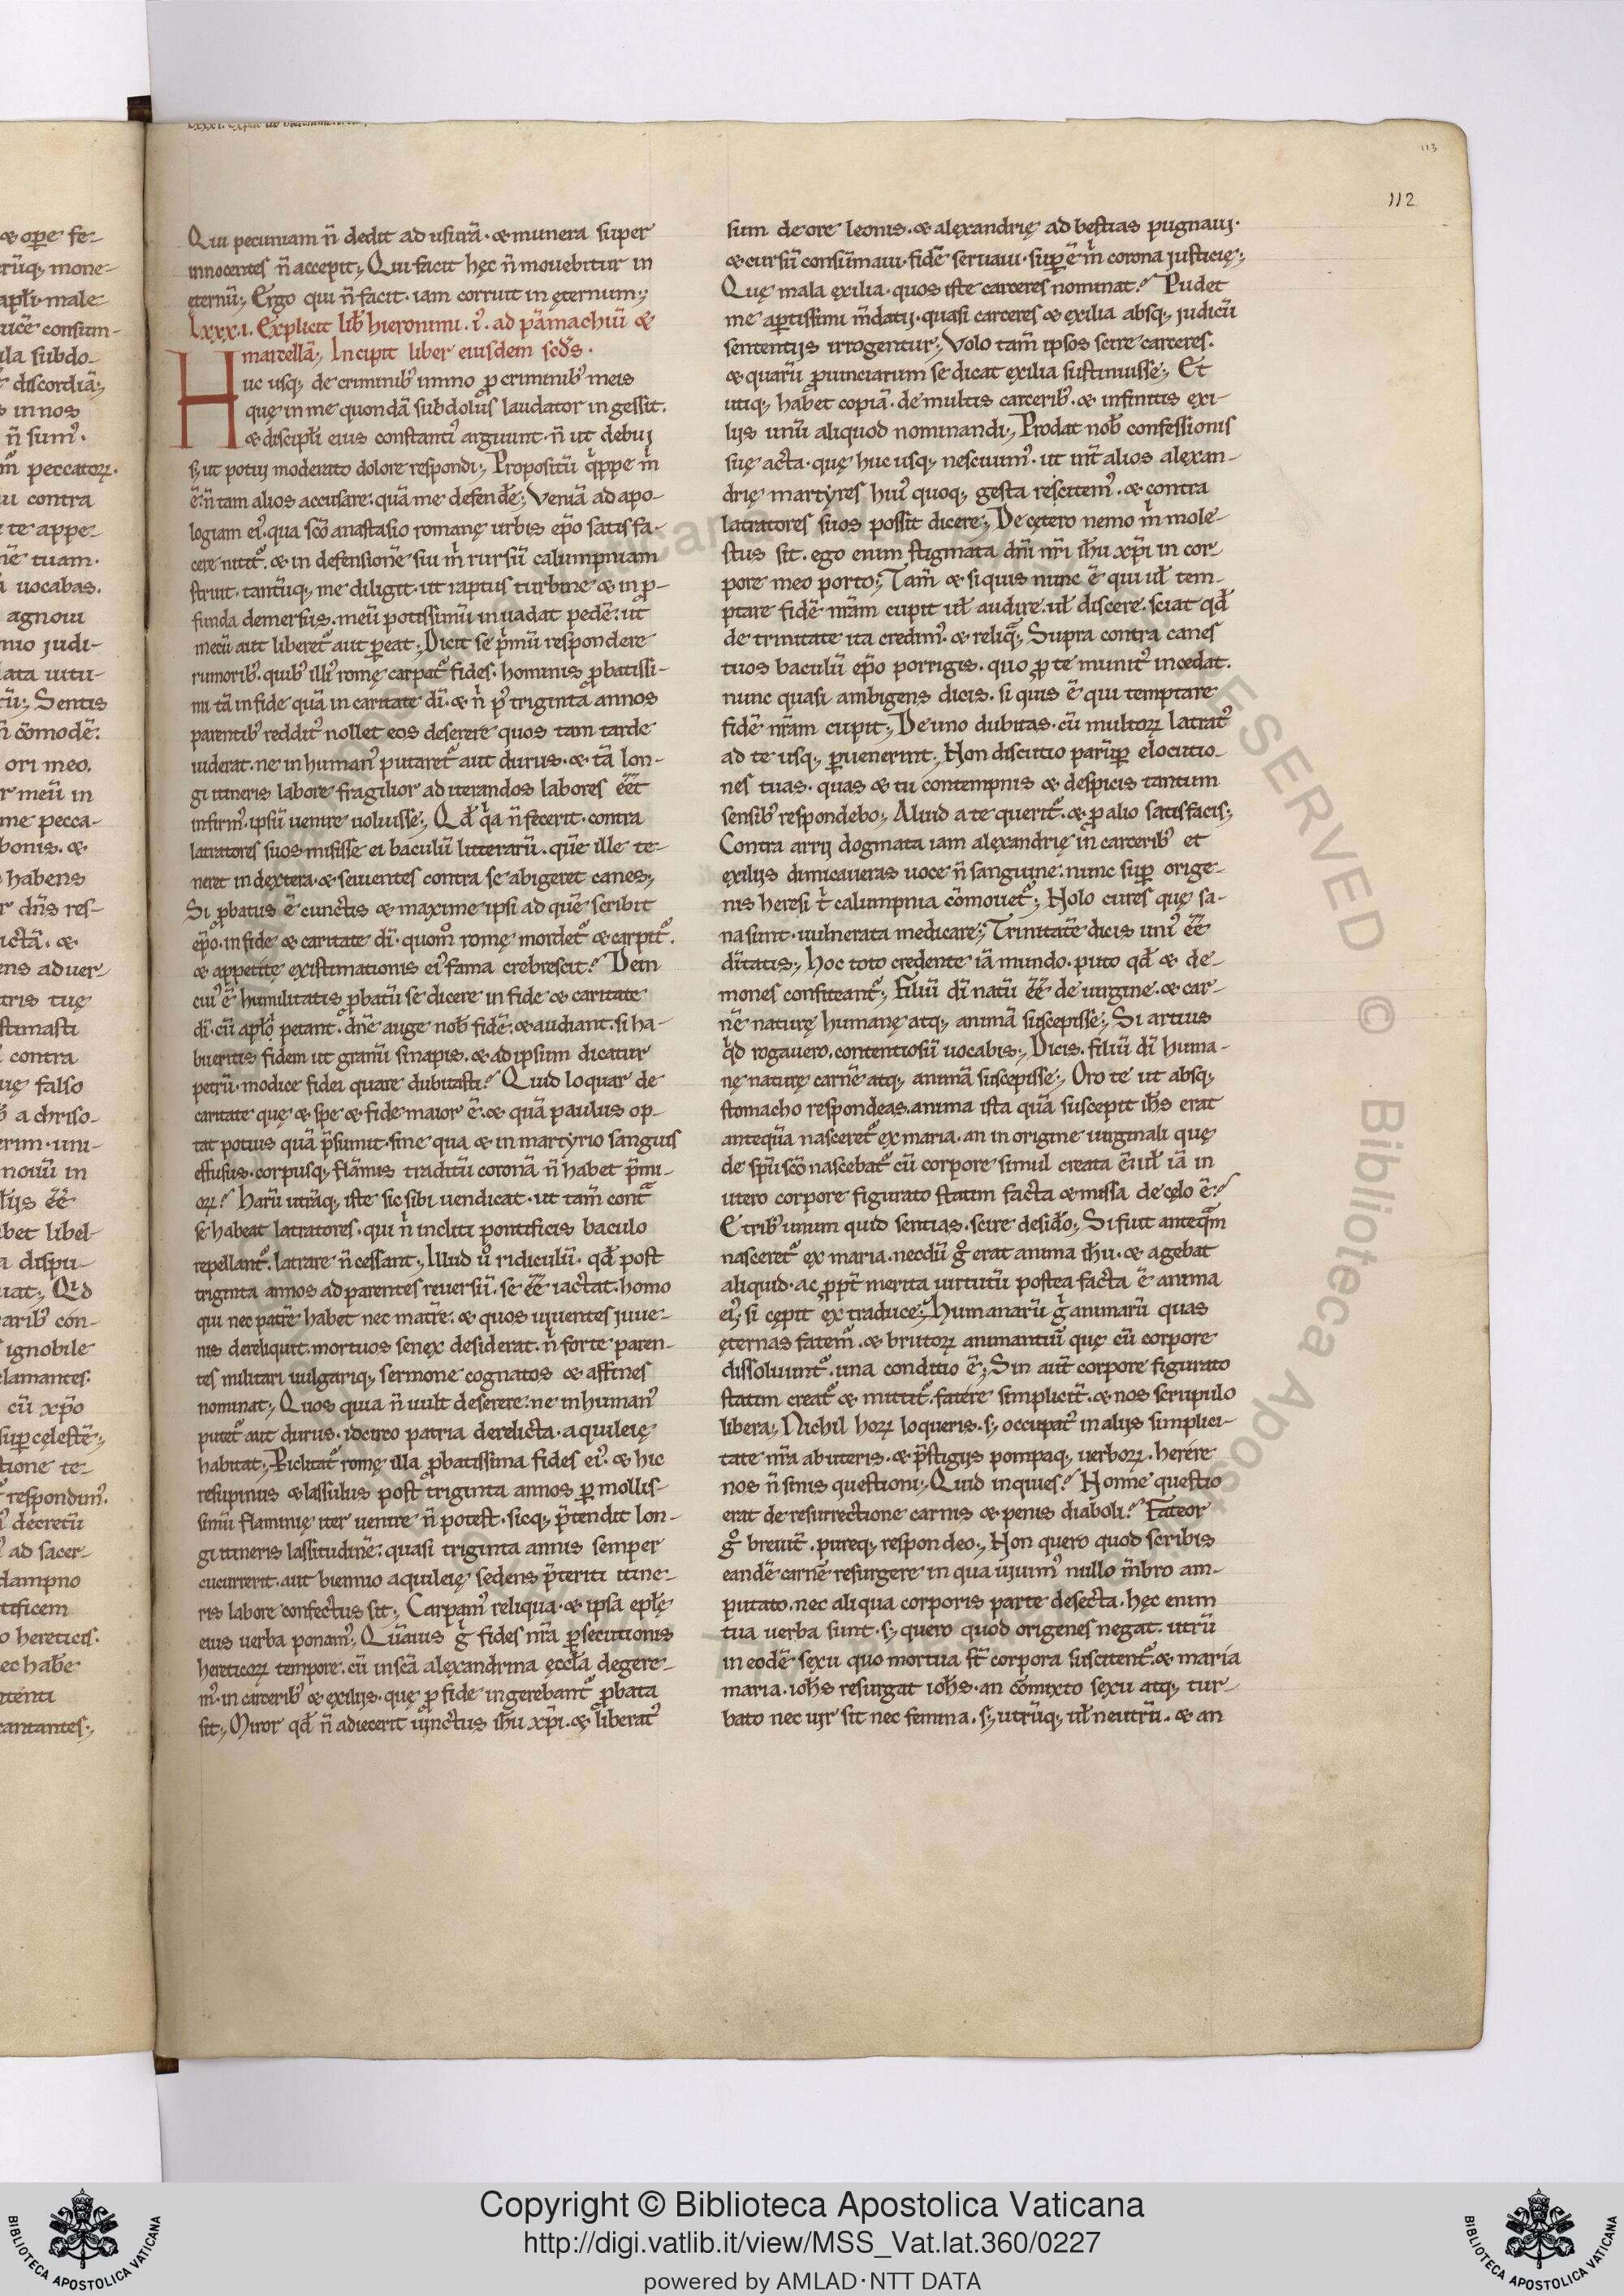 113
112
Qui pecuniam n̄ dedit ad usurā · & munera super
innocentes n̄ accepit ;, Qui facit hęc n̄ mouebitur in
ęternū ;, Ergo qui n̄ facit · iam corruit in ęternum ;,
Lxxx.i. Explicit lib̄ hieronimi . i᷒ . ad pāmachiū &
marcellā ;, Incipit liber eiusdem scd̄s .
Huc usq; de criminib᷒ immo ꝓ criminib᷒ meis
quę in me quondā subdolus laudator ingessit.
& discipl̄i eius constanti᷒ arguunt · n̄ ut debui
s; ut potui moderato dolore respondi ;, Propositū q̍ppe m̍
ē · n̄ tam alios accusare : quā me defend̄e ;, Veniā ad apo-
logiam ei᷒ . qua sc̄o anastasio romanę urbis ep̄o satisfa-
cere nitit᷑ . & in defensionē sui m̍ rursū calumpniam
struit · tantūq; me diligit · ut raptus turbine & in ꝓ-
funda demersus . meū potissimū inuadat pedē : ut
mecū aut liberet᷑ aut ꝑeat ;, Dicit se p̍mū respondere
rumorib᷒ . quib᷒ illi᷒ romę carpat᷑ fides . hominis ꝓbatissi-
mi tā in fide quā in caritate dī . & n̍ p᷒ triginta annos
parentib᷒ reddit᷒ nollet eos deserere quos tam tarde
uiderat . ne inhuman᷒ putaret᷑ aut durus . & tā lon-
gi itineris labore fragilior ad iterandos labores ēēt
infirm᷒ . ipsū uenire uoluisse ;, Qd̄ q̍a n̄ fecerit . contra
latratores suos misisse ei baculū litterarū . quē ille te-
neret in dextera · & seuientes contra se abigeret canes ;,
Si ꝓbatus ē cunctis & maxime ipsi ad quē scribit
ep̄o . in fide & caritate dī . quom̊ romę mordet᷑ & carpit᷑ .
& appetitę existimationis ei᷒ fama crebrescit ? Dein
cui᷒ ē humilitatis ꝓbatū se dicere in fide & caritate
dī . cū apl̄o̧ petant . dn̄e auge nob̄ fidē : & audiant . si ha-
bueritis fidem ut granū sinapis . & ad ipsum dicatur
petrū . modice fidei quare dubitasti ? Quid loquar de
caritate quę & spe & fide maior ē . & quā paulus op-
tat potius quā p̄sumit · sine qua & in martyrio sanguis
effusus . corpusq; flāmis traditū coronā n̄ habet p̄mi-
oꝝ ? Harū utrāq; iste sic sibi uendicat . ut tam̄ contᷓ
se habeat latratores . qui n̍ incliti pontificis baculo
repellant᷑ . latrare n̄ cessant ;, Illud u̇ ridiculū . qd̄ post
triginta annos ad parentes reuersū . se ēē iactat . homo
qui nec patrē habet nec matrē : & quos uiuentes iuue-
nis dereliquit . mortuos senex desiderat . n̍ forte paren-
tes militari uulgariq; sermone cognatos & affines
nominat ;, Quos quia n̄ uult deserere : ne inhuman᷒
putet᷑ aut durus . idcirco patria derelicta . aquileię
habitat ;, Piclitat᷑ romę illa ꝓbatissima fides ei᷒ . & hic
resupinus & lassulus post triginta annos ꝑ mollis-
simū flaminię iter uenire n̄ potest . sicq; p̄tendit lon-
gi itineris lassitudinē : quasi triginta annis semper
cucurrerit . aut biennio aquileię sedens p̄teriti itine-
ris labore confectus sit ;, Carpam᷒ reliqua . & ipsā epl̄ę
eius uerba ponam᷒ ;, Quāuis g̍ fides nr̄a ꝑsecutionis
hereticoꝝ tempore . cū in sc̄a alexandrina ęccl̄a degere-
m᷒ . in carcerib᷒ & exiliis . quę ꝓ fide ingerebant᷑ ꝓbata
sit ;, Miror qd̄ n̄ adiecerit uinctus ih̄u xp̄i . & liberat᷒
sum de ore leonis . & alexandrię ad bestias pugnaui .
& cursū consūmaui . fidē seruaui . suꝑ ē m̍ corona iusticię ;,
Quę mala exilia . quos iste carceres nominat ? Pudet
me aꝑtissimi m̄dacii . quasi carceres & exilia absq; iudicū
sententiis irrogentur ;, Volo tam̄ ipsos scire carceres .
& quarū ꝓuinciarum se dicat exilia sustinuisse ;, Et
utiq; habet copiā . de multis carcerib᷒ . & infinitis exi-
liis unū aliquod nominandi ;, Prodat nob̄ confessionis
suę acta . quę huc usq; nesciuim᷒ . ut int̄ alios alexan-
drię martyres hui᷒ quoq; gesta rescitem᷒ . & contra
latratores suos possit dicere ;, De cętero nemo m̍ mole-
stus sit . ego enim stigmata dn̄i nr̄i ih̄u xp̄i in cor-
pore meo porto ;, Tam̄ & si quis nunc ē qui ul̄ tem-
ptare fidē nr̄am cupit ul̄ audire . ul̄ discere . sciat qd̄
de trinitate ita credim᷒ . & reliq̄ ;, Supra contra canes
tuos baculū ep̄o porrigis . quo ꝓ te munit᷒ incedat .
nunc quasi ambigens dicis . si quis ē qui temptare
fidē nr̄am cupit ;, De uno dubitas . cū multoꝝ latrat᷒
ad te usq; ꝑuenerint ;, Non discutio parūꝑ elocutio-
nes tuas . quas & tu contempnis & despicis tantum
sensib᷒ respondebo ;, Aliud a te querit᷑ . & ꝓ alio satisfacis ;,
Contra arrii dogmata iam alexandrię in carcerib᷒ et
exiliis dimicaueras uoce n̄ sanguine : nunc suꝑ orige-
nis heresi t̍ calumpnia cōmouet᷑ ;, Nolo cures quę sa-
na sunt . uulnerata medicare ;, Trinitatē dicis uni᷒ ēē
dītatis ;, Hoc toto credente iā mundo . puto qd̄ & de-
mones confiteant᷑ ;, Filiū dī natū ēē de uirgine . & car-
nē naturę humanę atq; animā suscepisse ;, Si artius
q̍d rogauero . contentiosū uocabis ;, Dicis . filiū dī huma-
nę naturę carnē atq; animā suscepisse ;, Oro te ut absq;
stomacho respondeas . anima ista quā suscepit ih̄s erat
antequā nasceret᷑ ex maria . an in origine uirginali quę
de sp̄u sc̄o nascebat᷑ cū corpore simul creata ē : ul̄ iā in
utero corpore figurato statim facta & missa de cęlo ē ?
E trib᷒ unum quid sentias . scire desid̄o ;, Si fuit anteqᷓm
nasceret᷑ ex maria . necdū g̊ erat anima ih̄u . & agebat
aliquid . ac ꝓpt̄ merita uirtutū postea facta ē anima
ei᷒ ; si cępit ex traduce ;, Humanarū g̍ animarū quas
ęternas fatem᷑ . & brutoꝝ animantiū quę cū corpore
dissoluunt᷑ . una conditio ē ;, Sin aut̄ corpore figurato
statim creat᷑ & mittit᷑ . fatere simplicit̄ . & nos scrupulo
libera ;, Nichil hoꝝ loqueris . s; occupat᷒ in aliis simplici-
tate nr̄a abuteris . & p̄stigiis pompaq; uerboꝝ . herére
nos n̄ sinis questioni ;, Quid inquies ? Nonne questio
erat de resurrectione carnis & penis diaboli ? Fateor
g̊ breuit̄ . pureq; respondeo ;, Non quero quod scribis
eandē carnē resurgere in qua uiuim᷒ nullo m̄bro am-
putato . nec aliqua corporis parte desecta . hęc enim
tua uerba sunt . s; quero quod origenes negat . utrū
in eodē sexu quo mortua st̄ corpora suscitent᷑ . & maria
maria . ioh̄s resurgat ioh̄s . an cōmixto sexu atq; tur-
bato nec uir sit nec femina . s; utrūq; ul̄ neutrū . & an
Copyright © Biblioteca Apostolica Vaticana
http://digi.vatlib.it/view/MSS_Vat.lat.360/0227
powered by AMLAD·NTT DATA
BIBLIOTECA APOSTOLICA VATICANA
BIBLIOTECA APOSTOLICA VATICANA